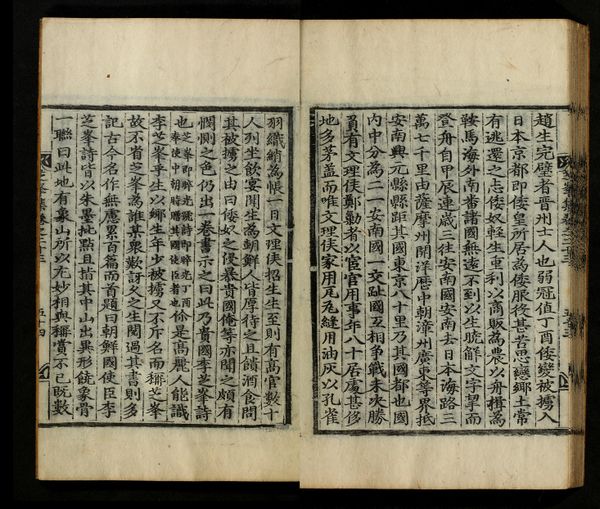 芝峯集卷之二十三
五十三
趙生完璧者晋州士人也弱冠値丁酉倭變被擄入
日本京都即倭皇所居為倭服役甚苦思戀鄕土常
有逃還之志倭奴輕生重利以商販為農以舟楫為
鞍馬海外南番諸國無遠不到以生曉解文字挈而
登舟自甲辰連歲三往安南國安南去日本海路三
萬七千里由薩摩州開洋歷中朝漳州廣東等界抵
安南興元縣縣距其國東京八十里乃其國都也國
內中分為二一安南國一交趾國互相爭戰未決勝
負有文理侯鄭勦者以宦官用事年八十居處甚侈
地多茅盖而唯文理侯家用瓦瓦縫用油灰以孔雀
羽織繢為帳一日文理侯招生生至則有高官數十
人列坐飮宴聞生為朝鮮人皆厚待之且饋酒食問
其被擄之由曰倭奴之侵暴貴國俺等亦聞之頗有
憫惻之色仍出一卷書示之曰此乃貴國李芝峯詩
也芝峯即睟光號詩即睟光丁酉奉使中朝時贈其國使臣者也你是髙麗人能識
李芝峯乎生以鄕生年少被擄又不斥名而稱芝峯
故不省芝峯為誰某衆歎訝久之生閱過其書則多
記古今名作無慮累百篇而首題曰朝鮮國使臣李
芝峯詩皆以朱墨批點且指其中山出異形饒象骨
一聯曰此地有象山所以尤妙相與稱賞不已旣數
芝峯集卷之二十三
五十四